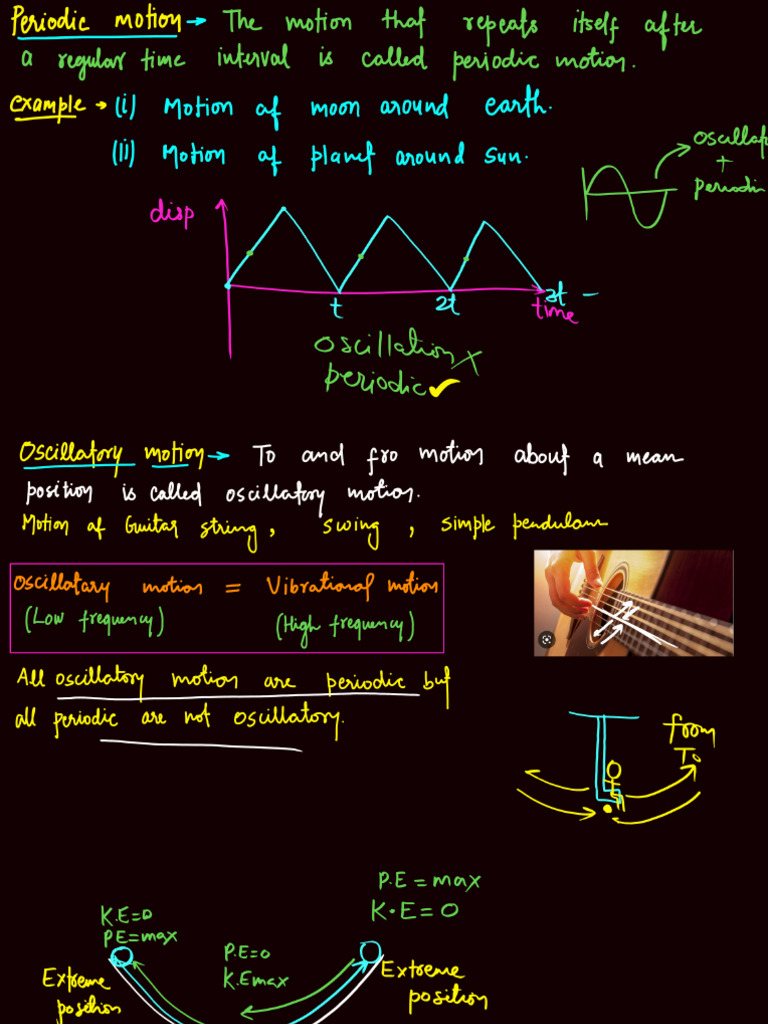 Periodic motion → The motion that repeats itself after
a regular time interval is called periodic motion.
example → (i) Motion of moon around earth.
(ii) Motion of planet around sun.
+
disp
t 2t 3t
time
Oscillation ×
periodic ✓
Oscillatory motion → To and fro motion about a mean
position is called oscillatory motion.
Motion of Guitar string, swing, simple
Oscillatory motion = Vibrational motion
(Low frequency) (High frequency)
All oscillatory motion are periodic but
all periodic are not oscillatory.
from
To
P.E = max
K.E = 0
K.E=0
PE=max
P.E=0
K.Emax
Extreme
position
Extreme
position